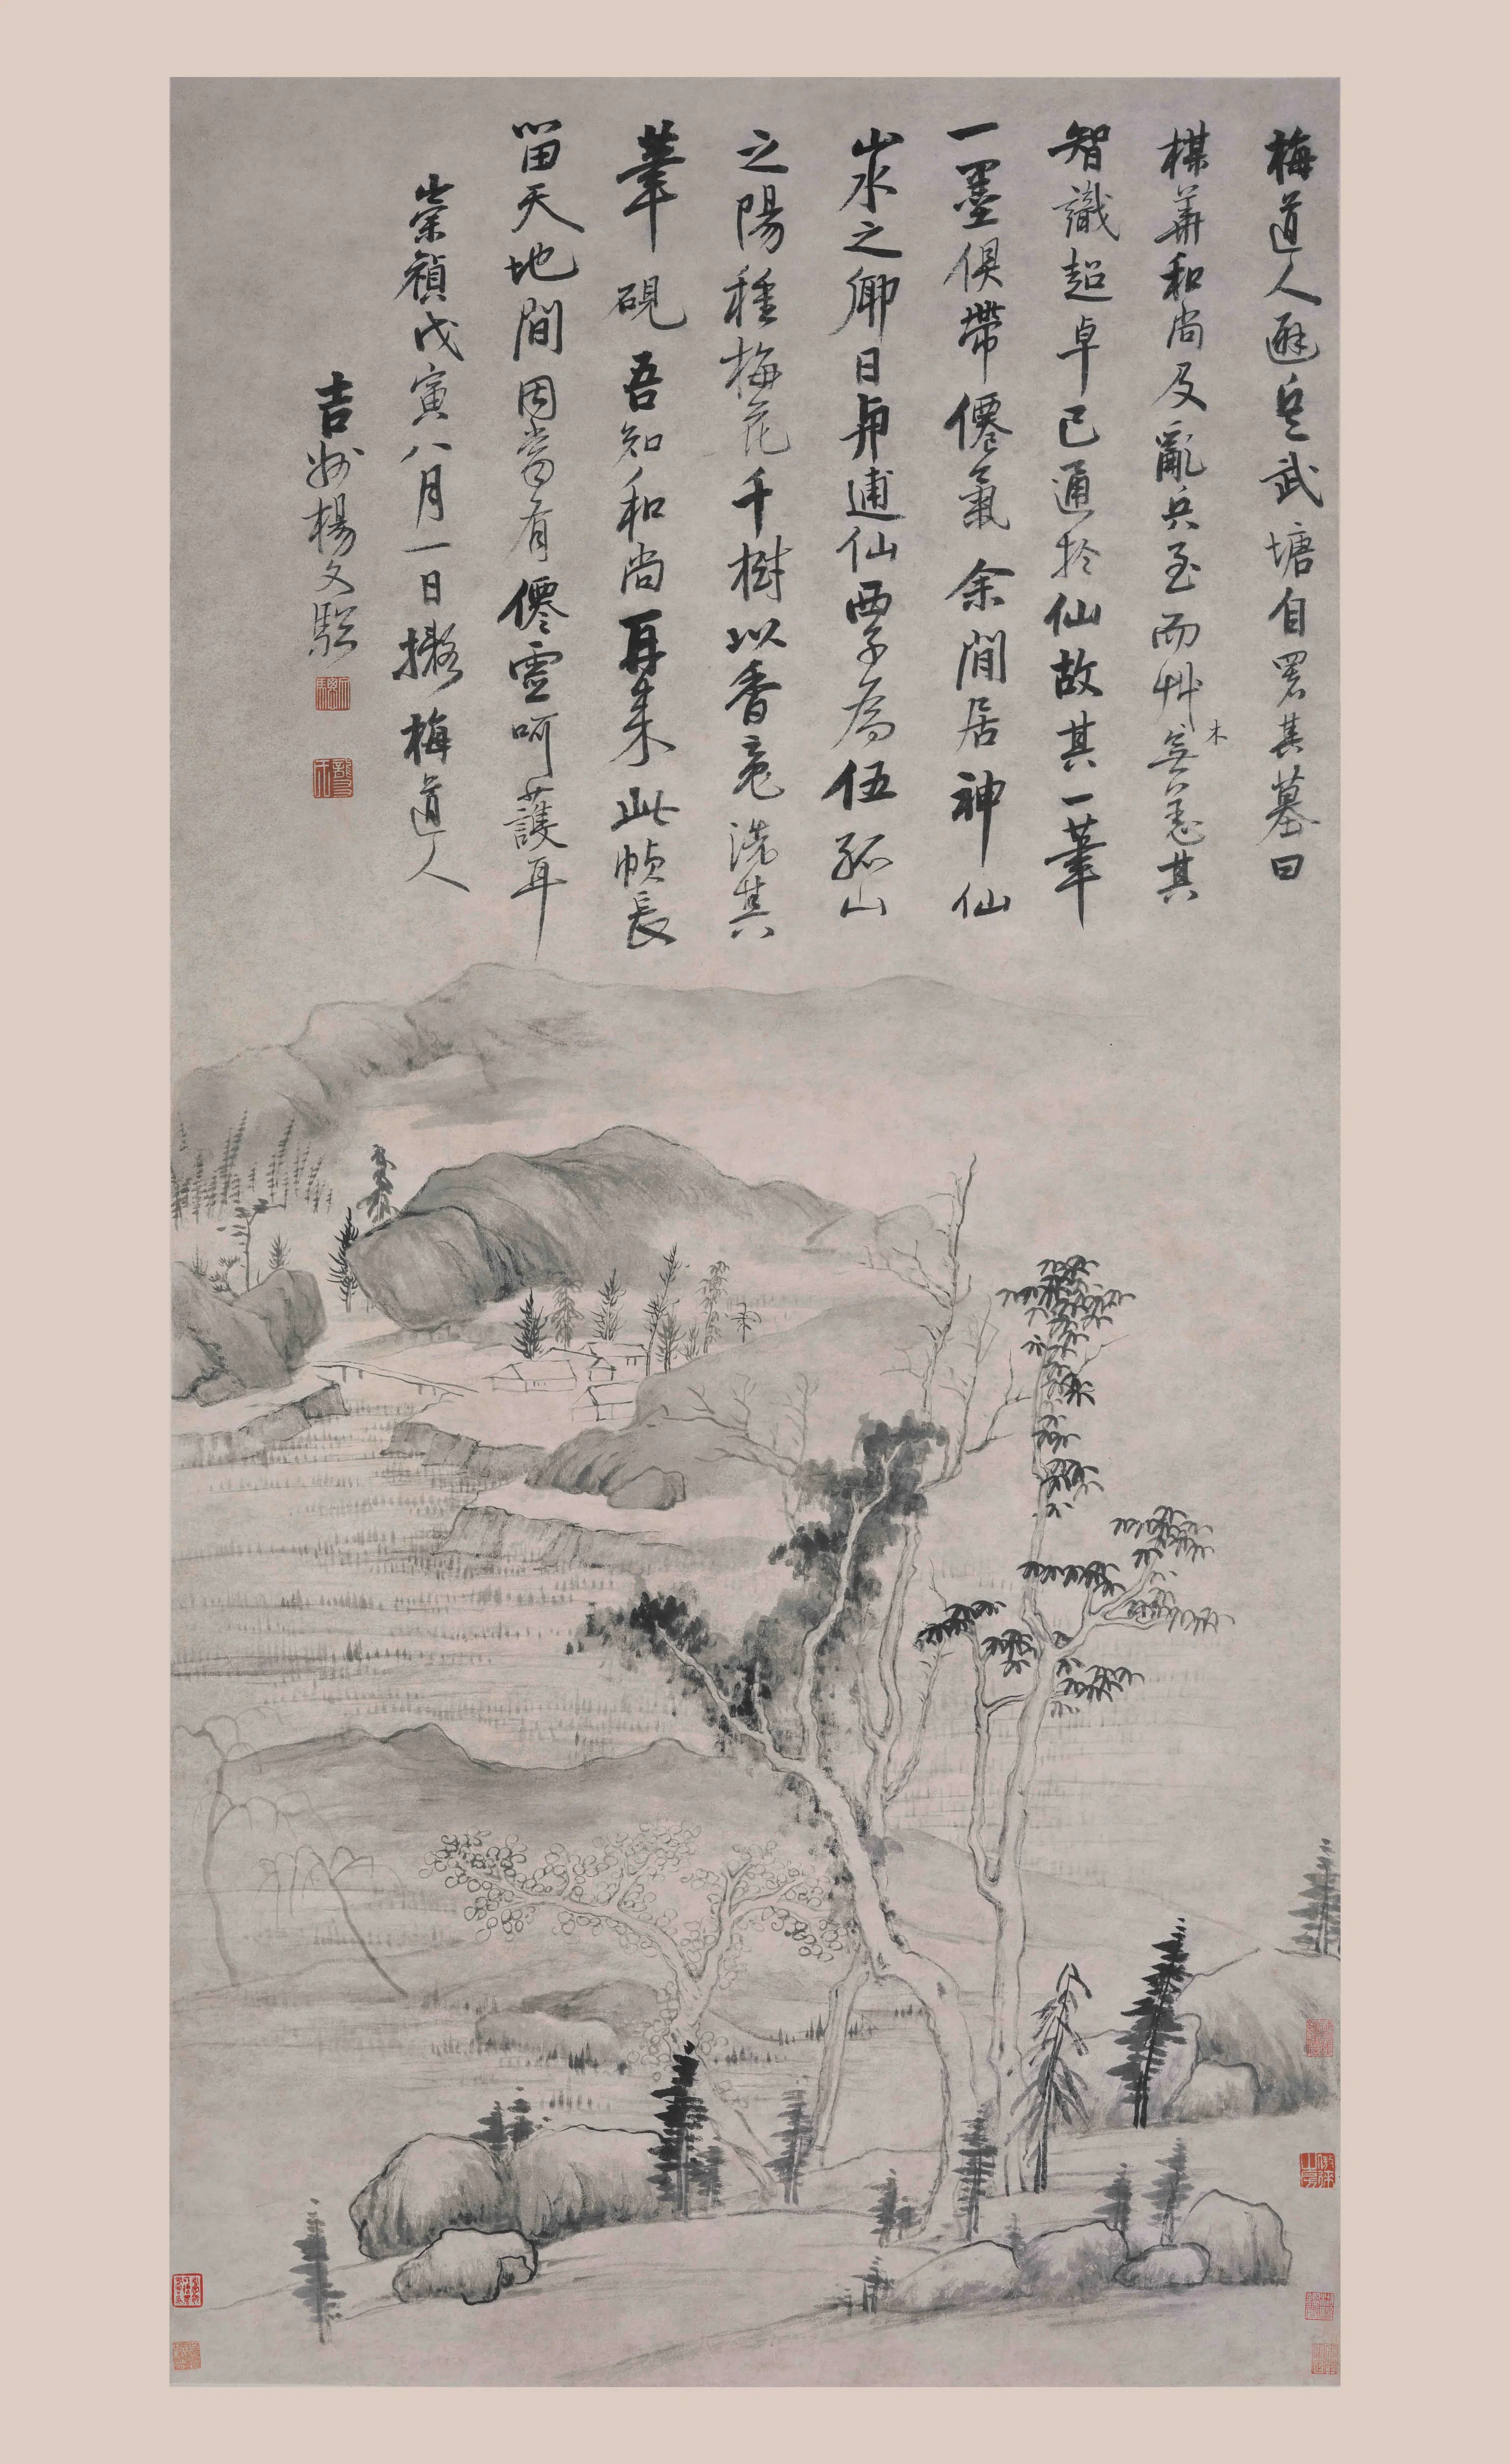 梅道人避兵武塘自署其墓曰
楳華和尚及亂兵至而艸木無恙其
智識超卓已通於仙故其一筆
一墨俱帶僊氣余閒居神仙
山水之鄉日與逋仙西子為伍孤山
之陽種梅花千樹以香雪洗其
筆硯吾知和尚再來此幀長
留天地間因當有僊靈呵護耳
崇禎戊寅八月一日擬梅道人
吉州楊文驄